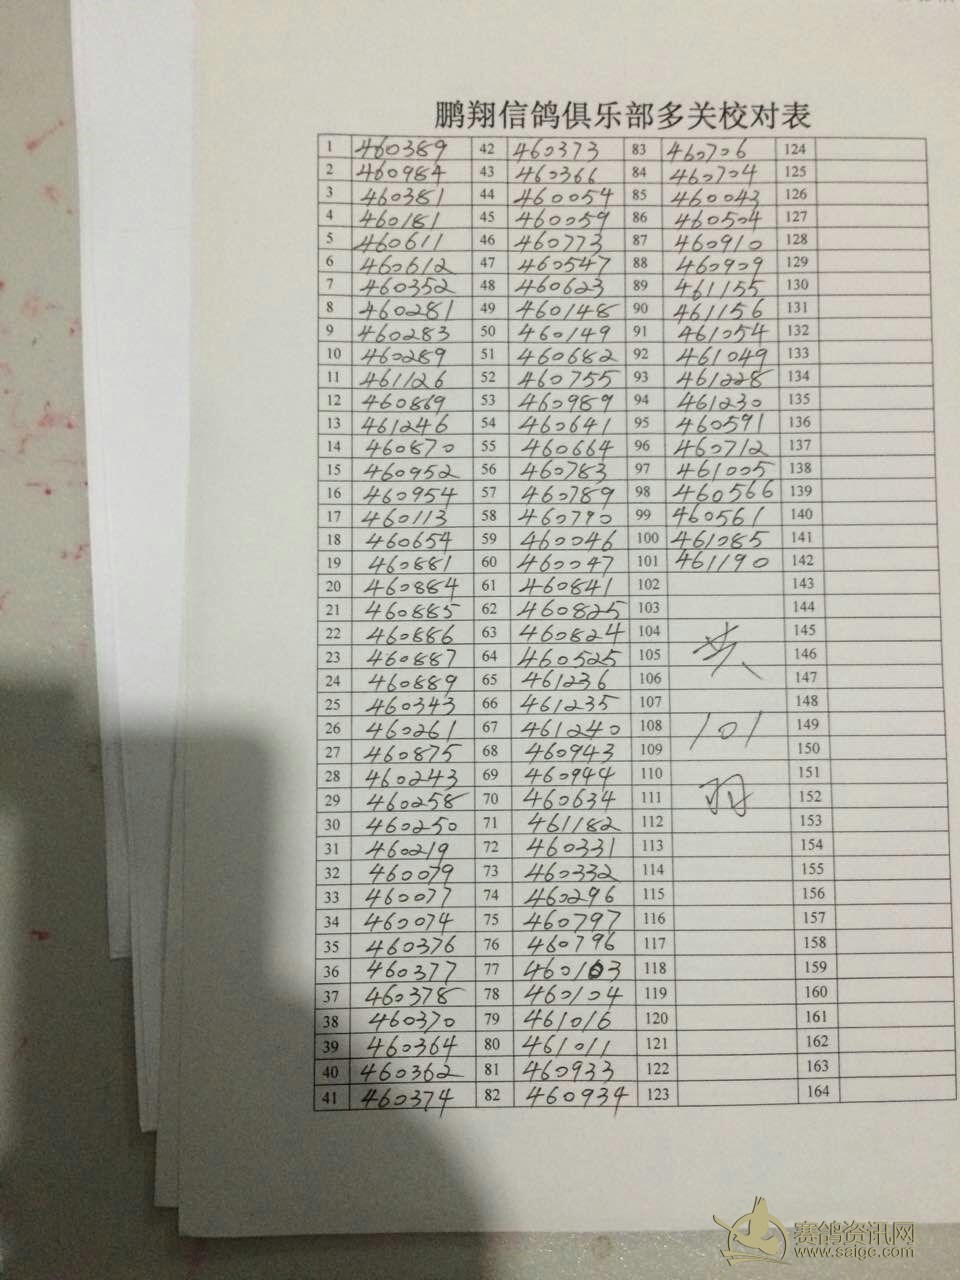 鹏翔信鸽俱乐部多关校对表
1 460389 42 460373 83 460706 124
2 460984 43 460366 84 460704 125
3 460381 44 460054 85 460043 126
4 460181 45 460059 86 460504 127
5 460611 46 460773 87 460910 128
6 460612 47 460547 88 460909 129
7 460352 48 460623 89 461155 130
8 460281 49 460148 90 461156 131
9 460283 50 460149 91 461054 132
10 460289 51 460682 92 461049 133
11 461126 52 460755 93 461228 134
12 460869 53 460989 94 461230 135
13 461246 54 460641 95 460591 136
14 460870 55 460664 96 460712 137
15 460952 56 460783 97 461005 138
16 460954 57 460789 98 460566 139
17 460113 58 460790 99 460561 140
18 460654 59 460046 100 461085 141
19 460881 60 460047 101 461190 142
20 460884 61 460841 102 143
21 460885 62 460825 103 144
22 460886 63 460824 104 共 145
23 460887 64 460525 105 146
24 460889 65 461236 106 147
25 460343 66 461235 107 148
26 460261 67 461240 108 101 149
27 460875 68 460943 109 150
28 460243 69 460944 110 151
29 460258 70 460634 111 羽 152
30 460250 71 461182 112 153
31 460219 72 460331 113 154
32 460079 73 460332 114 155
33 460077 74 460296 115 156
34 460074 75 460797 116 157
35 460376 76 460796 117 158
36 460377 77 460103 118 159
37 460378 78 460104 119 160
38 460370 79 461016 120 161
39 460364 80 461011 121 162
40 460362 81 460933 122 163
41 460374 82 460934 123 164
赛鸽资讯网
www.saige.com